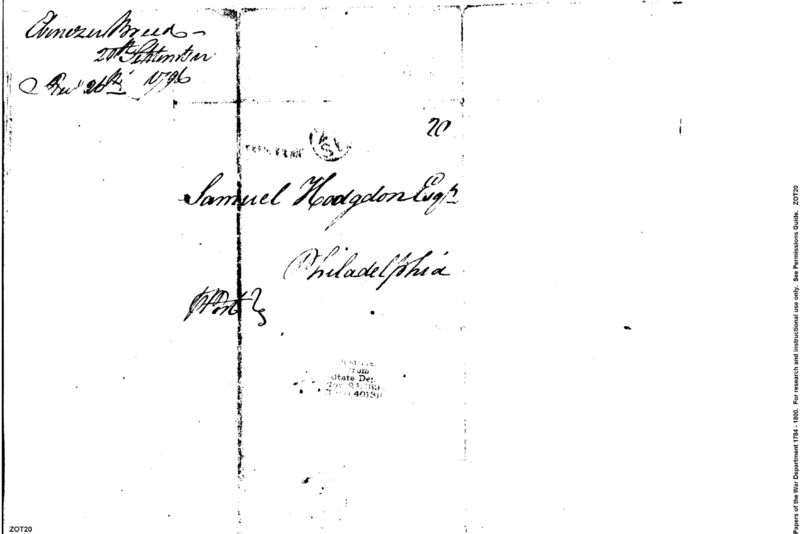 Ebenezer Breed –
20th September
Recd 26th 1796
20
21
SE
Samuel Hodgdon Esqr
Philadelphia
from
State De
4013
ZOT20
Papers of the War Department 1784 - 1800. For research and instructional use only. See Permissions Guide. ZOT20